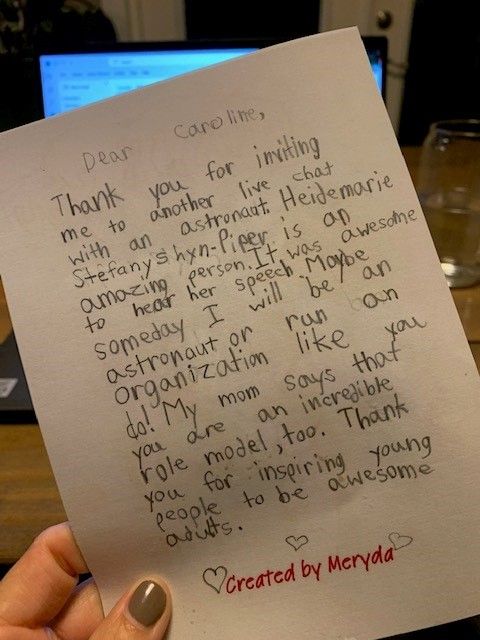 Dear Caroline,
Thank you for inviting
me to another live chat
with an astronaut. Heidemarie
Stefanyshyn-Piper is an
amazing person. It was awesome
to hear her speech. Maybe
someday I will be an
astronaut or run an
organization like you
do! My mom says that
you are an incredible
role model, too. Thank
you for inspiring young
people to be awesome
adults.
Created by Meryda